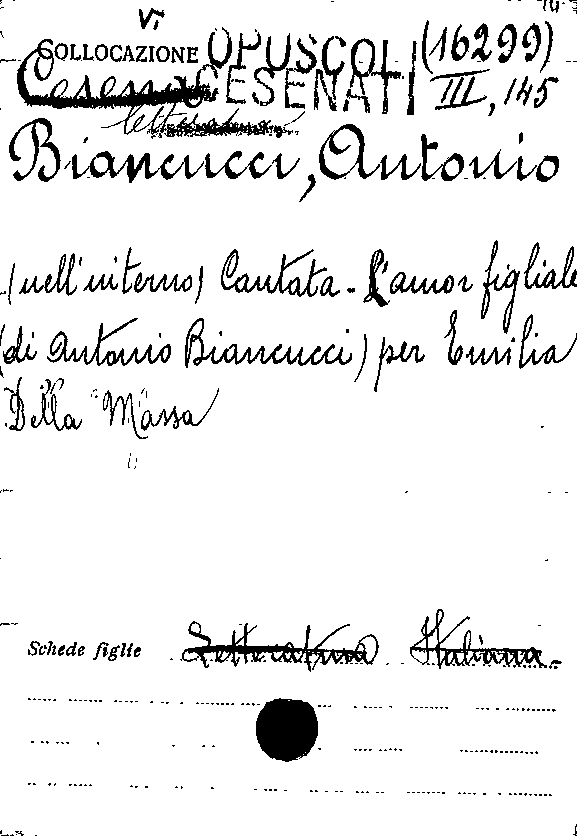 Vi
COLLOCAZIONE OPUSCOLI (16299)
Cesena CESENATI III, 145
letteratura
Biancucci, Antonio
(nell'interno) Cantata - L'amor figliale
(di Antonio Biancucci) per Emilia
Della Massa
Schede figlie Letteratura Italiana